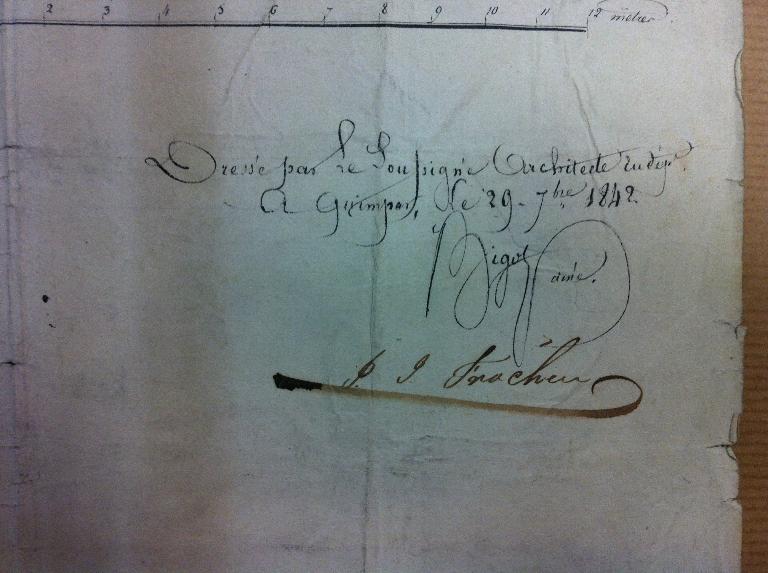 2 3 4 5 6 7 8 9 10 11 12 mètres
Dressé par le Soussigné Architecte
A Quimper, le 29 - 7bre 1842.
Bigot ainé.
P. J.